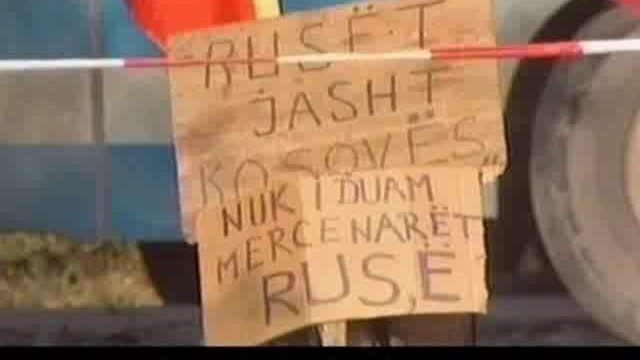 "RUSËT
JASHT
KOSOVËS"
NUK I DUAM
MERCENARËT
RUS,Ë